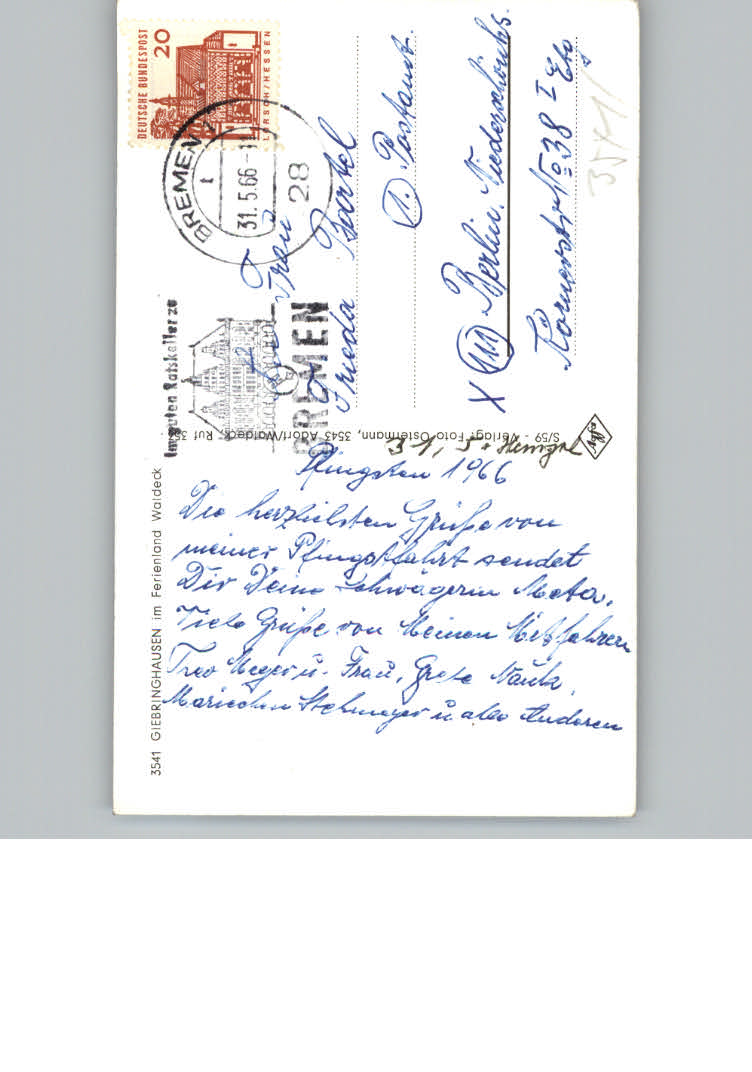 3541 GIEBRINGHAUSEN im Ferienland Waldeck
Pfingsten 1966
Die herzlichsten Grüße von
meiner Pfingstfahrt sendet
Dir Deine Schwägerin Meta.
Viele Grüße von Meinen Mitfahrern
Meyer u. Frau, Grete
Mariechen Stehmeyer u alle Anderen
S/59 - Verlag: Foto Ostermann, 3543 Adorf/Waldeck, Ruf 357
31, 5. Stempel
DEUTSCHE BUNDESPOST
20
LORSCH/HESSEN
BREMEN 1
31.5.66-11
28
Im guten Ratskeller zu
BREMEN
Frau
Frieda Bartel
(1.) Postamt.
X (1) Berlin. Niederschönhs.
Körnerstr No 38 I Etg
3541/